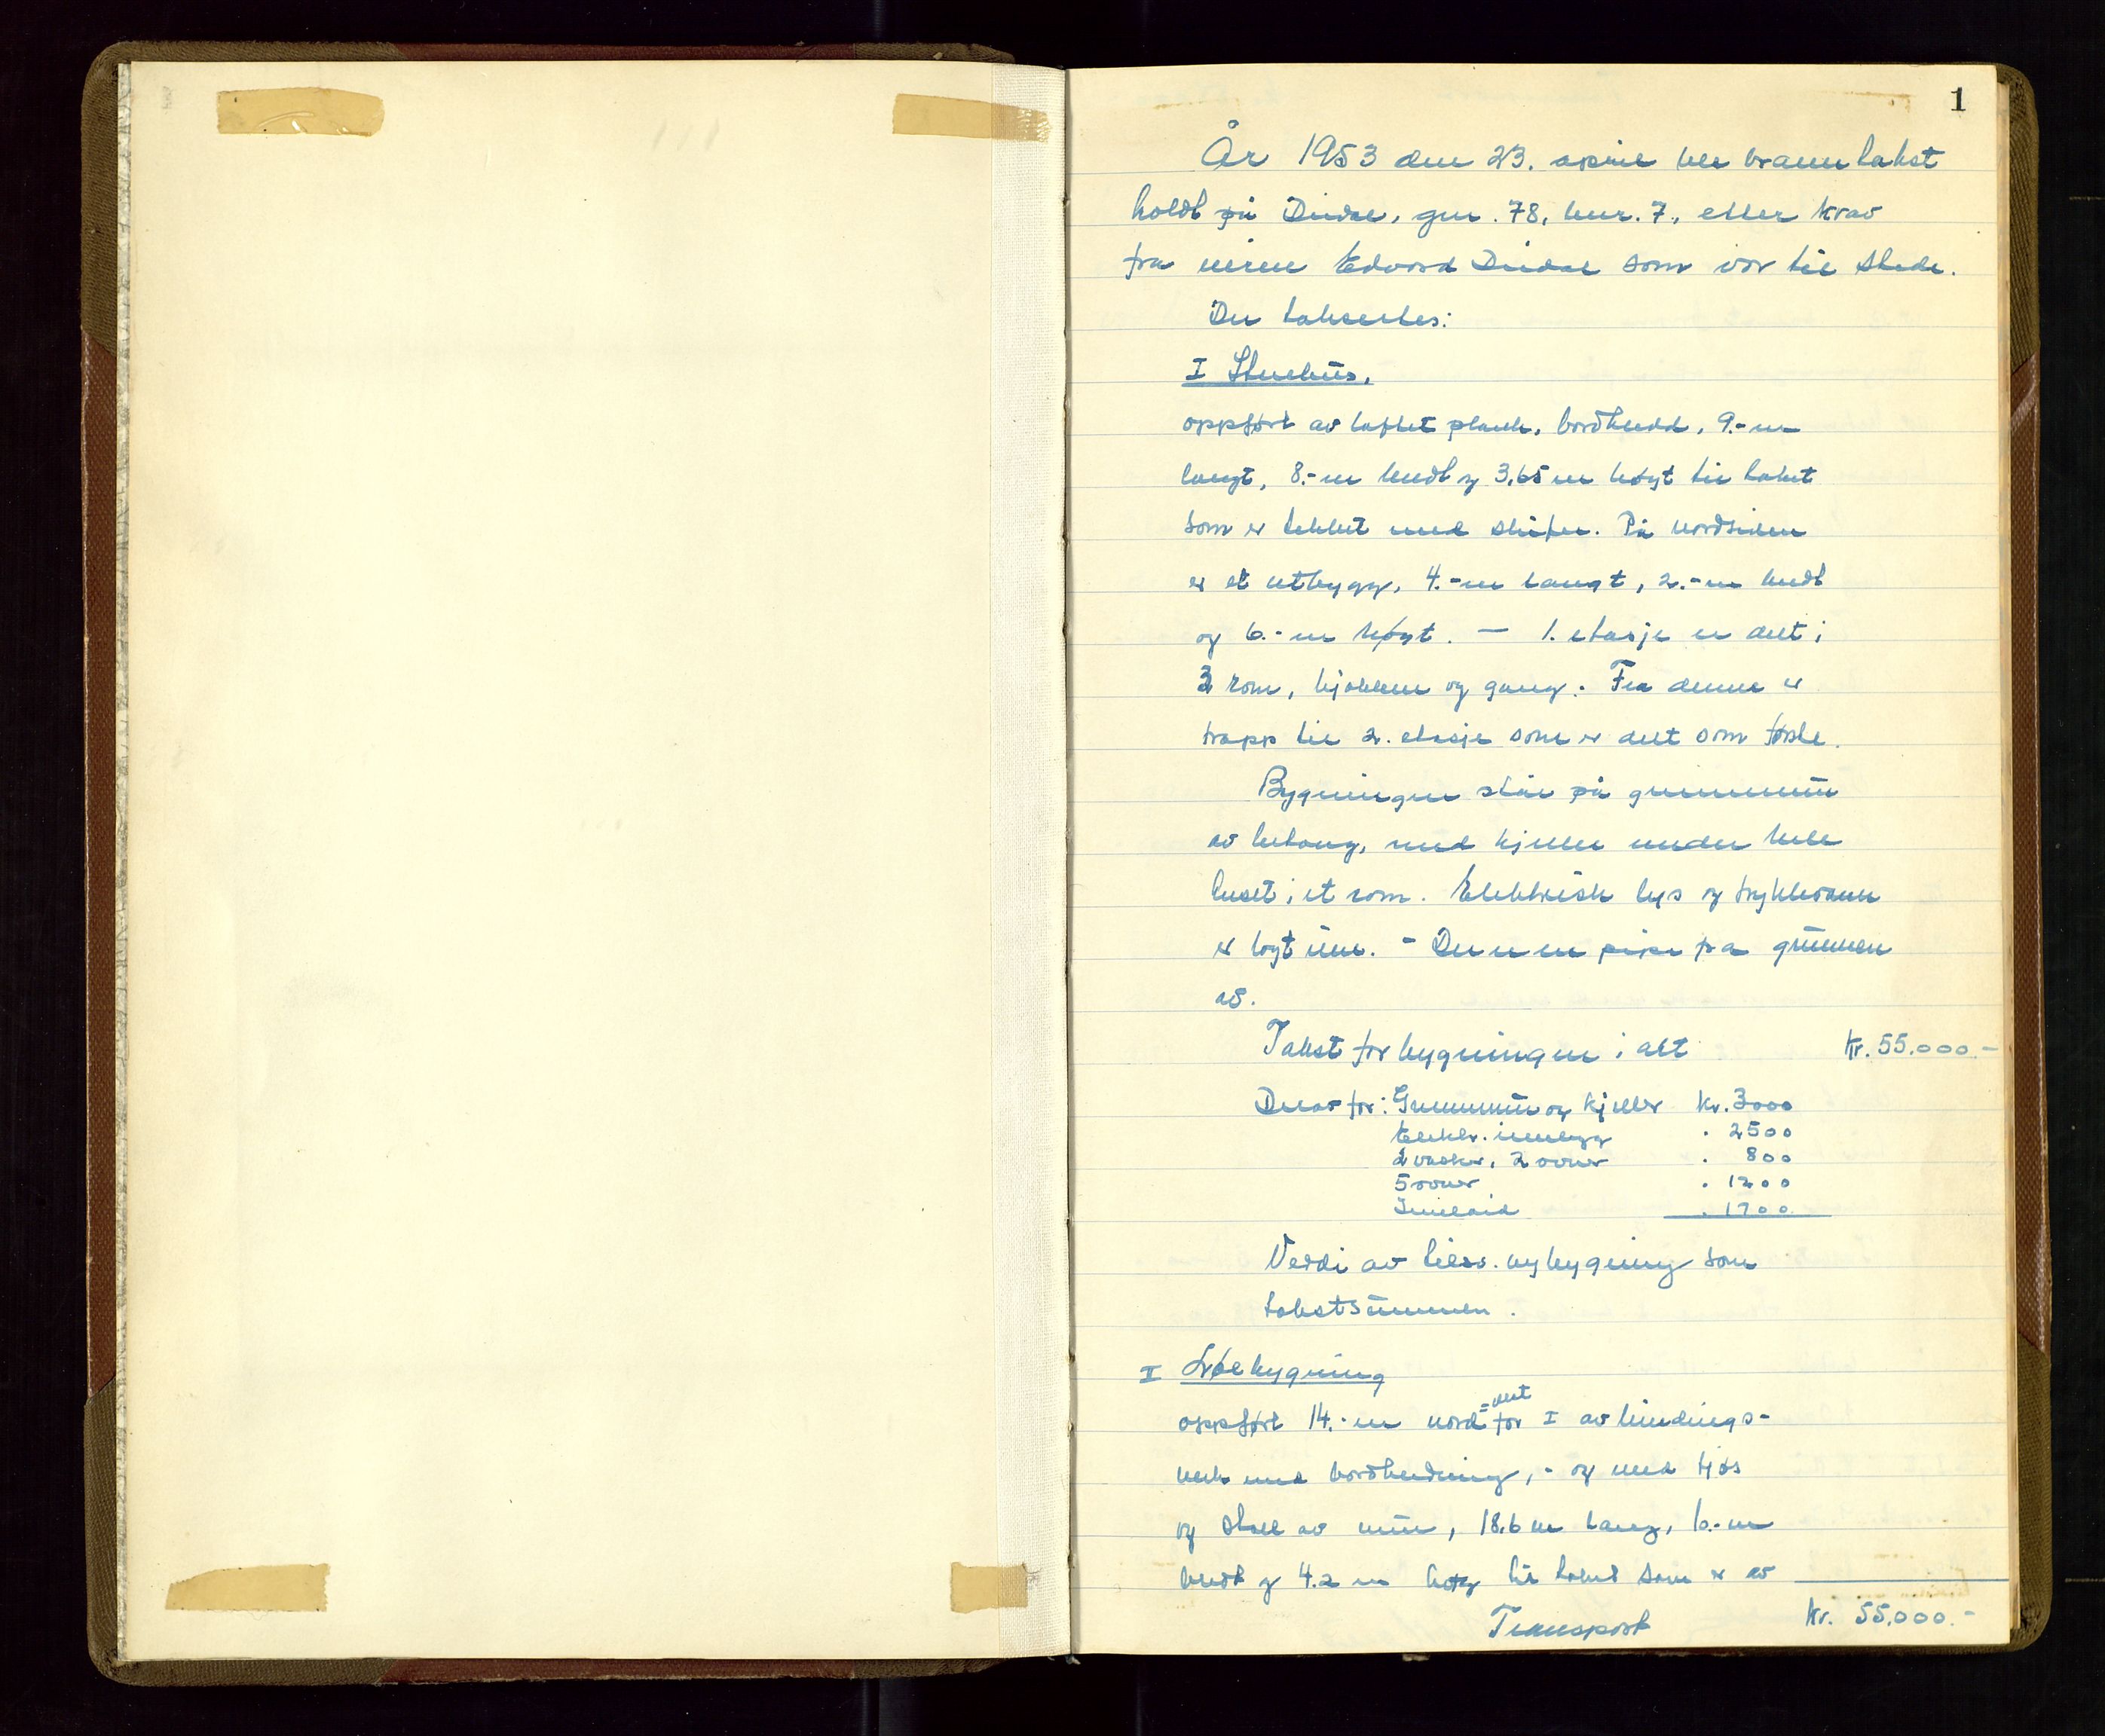 1
År 1953 den 23. april ble branntakst
holdt på Dirdal, gnr. 78, bnr. 7, etter krav
fra eieren Edvard Dirdal som var til stede.
Der takseertes:
I Stuehus.
oppført av laftet plank, bordkledd, 9.-m
langt, 8.-m bredt og 3,65 m høyt til taket
som er tekket med skifer. På nordsiden
er et utbygg, 4.-m langt, 2.-m bredt
og 6.-m høyt. — 1. etasje er delt i
3 rom, kjøkken og gang. Fra denne er
trapp til 2. etasje som er delt som første.
Bygningen står på grunnmur
av betong, med kjeller under hele
huset i et rom. Elektrisk lys og trykkvann
er lagt inn. - Der er en pipe fra grunnen
av.
Takst for bygningen i alt kr. 55.000.-
Derav for: Grunnmur og kjeller kr. 3000
Elektr. innlegg . 2500
2 vasker, 2 ovner . 800
5 ovner . 1200
Innlaid . 1700
Verdi av tilsv. nybygning som
takstsummen.
II Løebygning
oppført 14.-m nord=vest for I av bindings-
verk med bordkledning, - og med fjøs
og stall av mur, 18,6 m lang, 10.-m
bredt og 4.2 m høy til taket som er av
Transport kr. 55.000.-